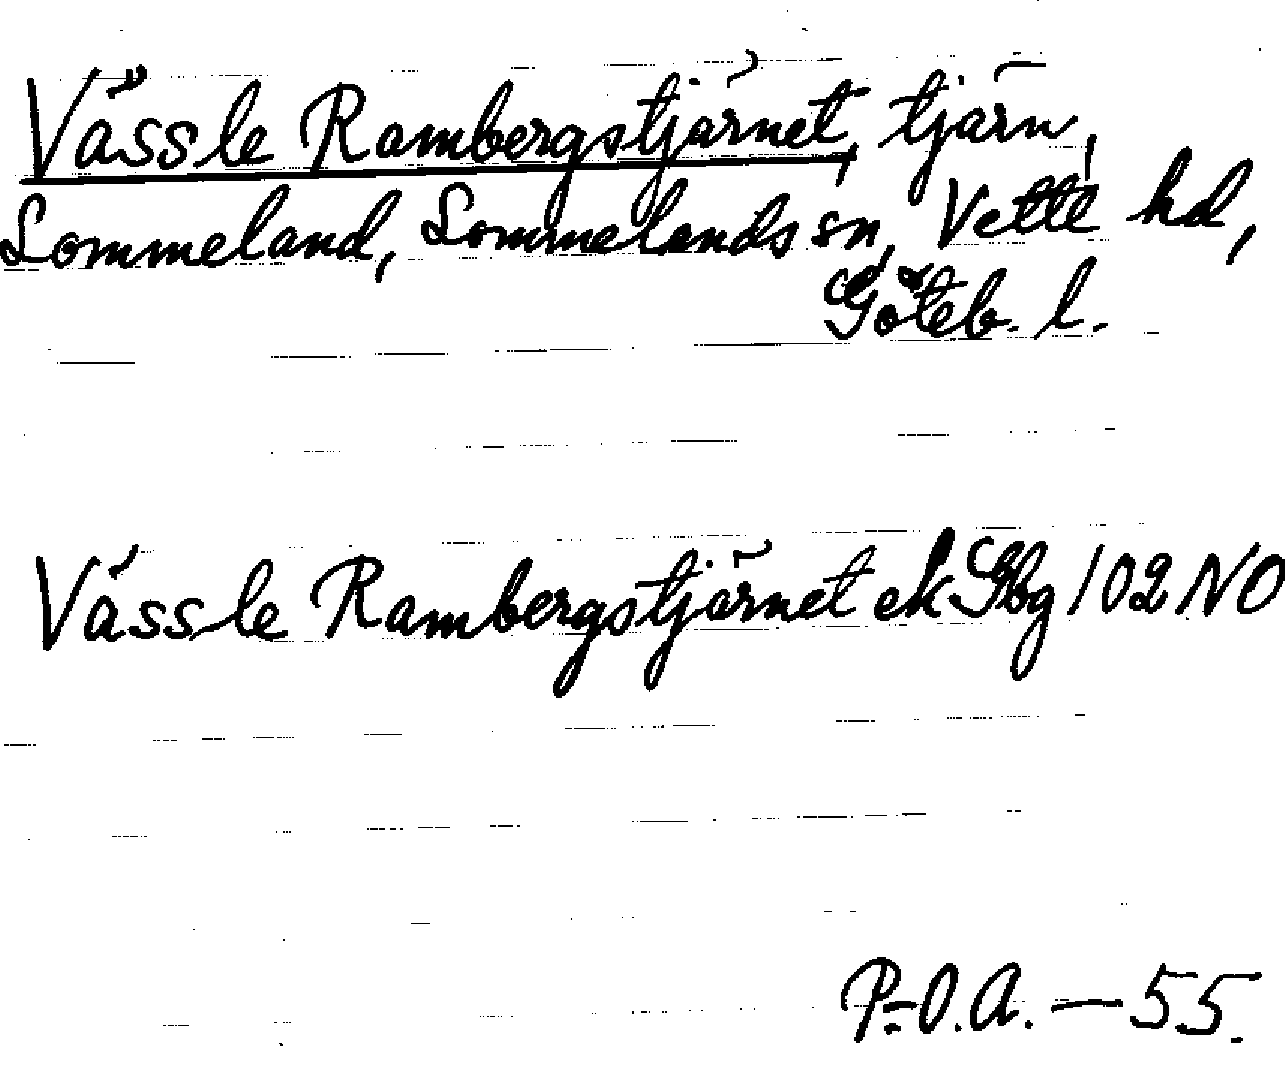 Vässle Rambergstjärnet, tjärn,
Lommeland, Lommelands sn, Vette hd,
Göteb. l.
Vässle Rambergstjärnet ek Gbg 102 NO
P.-O.A. - 55.